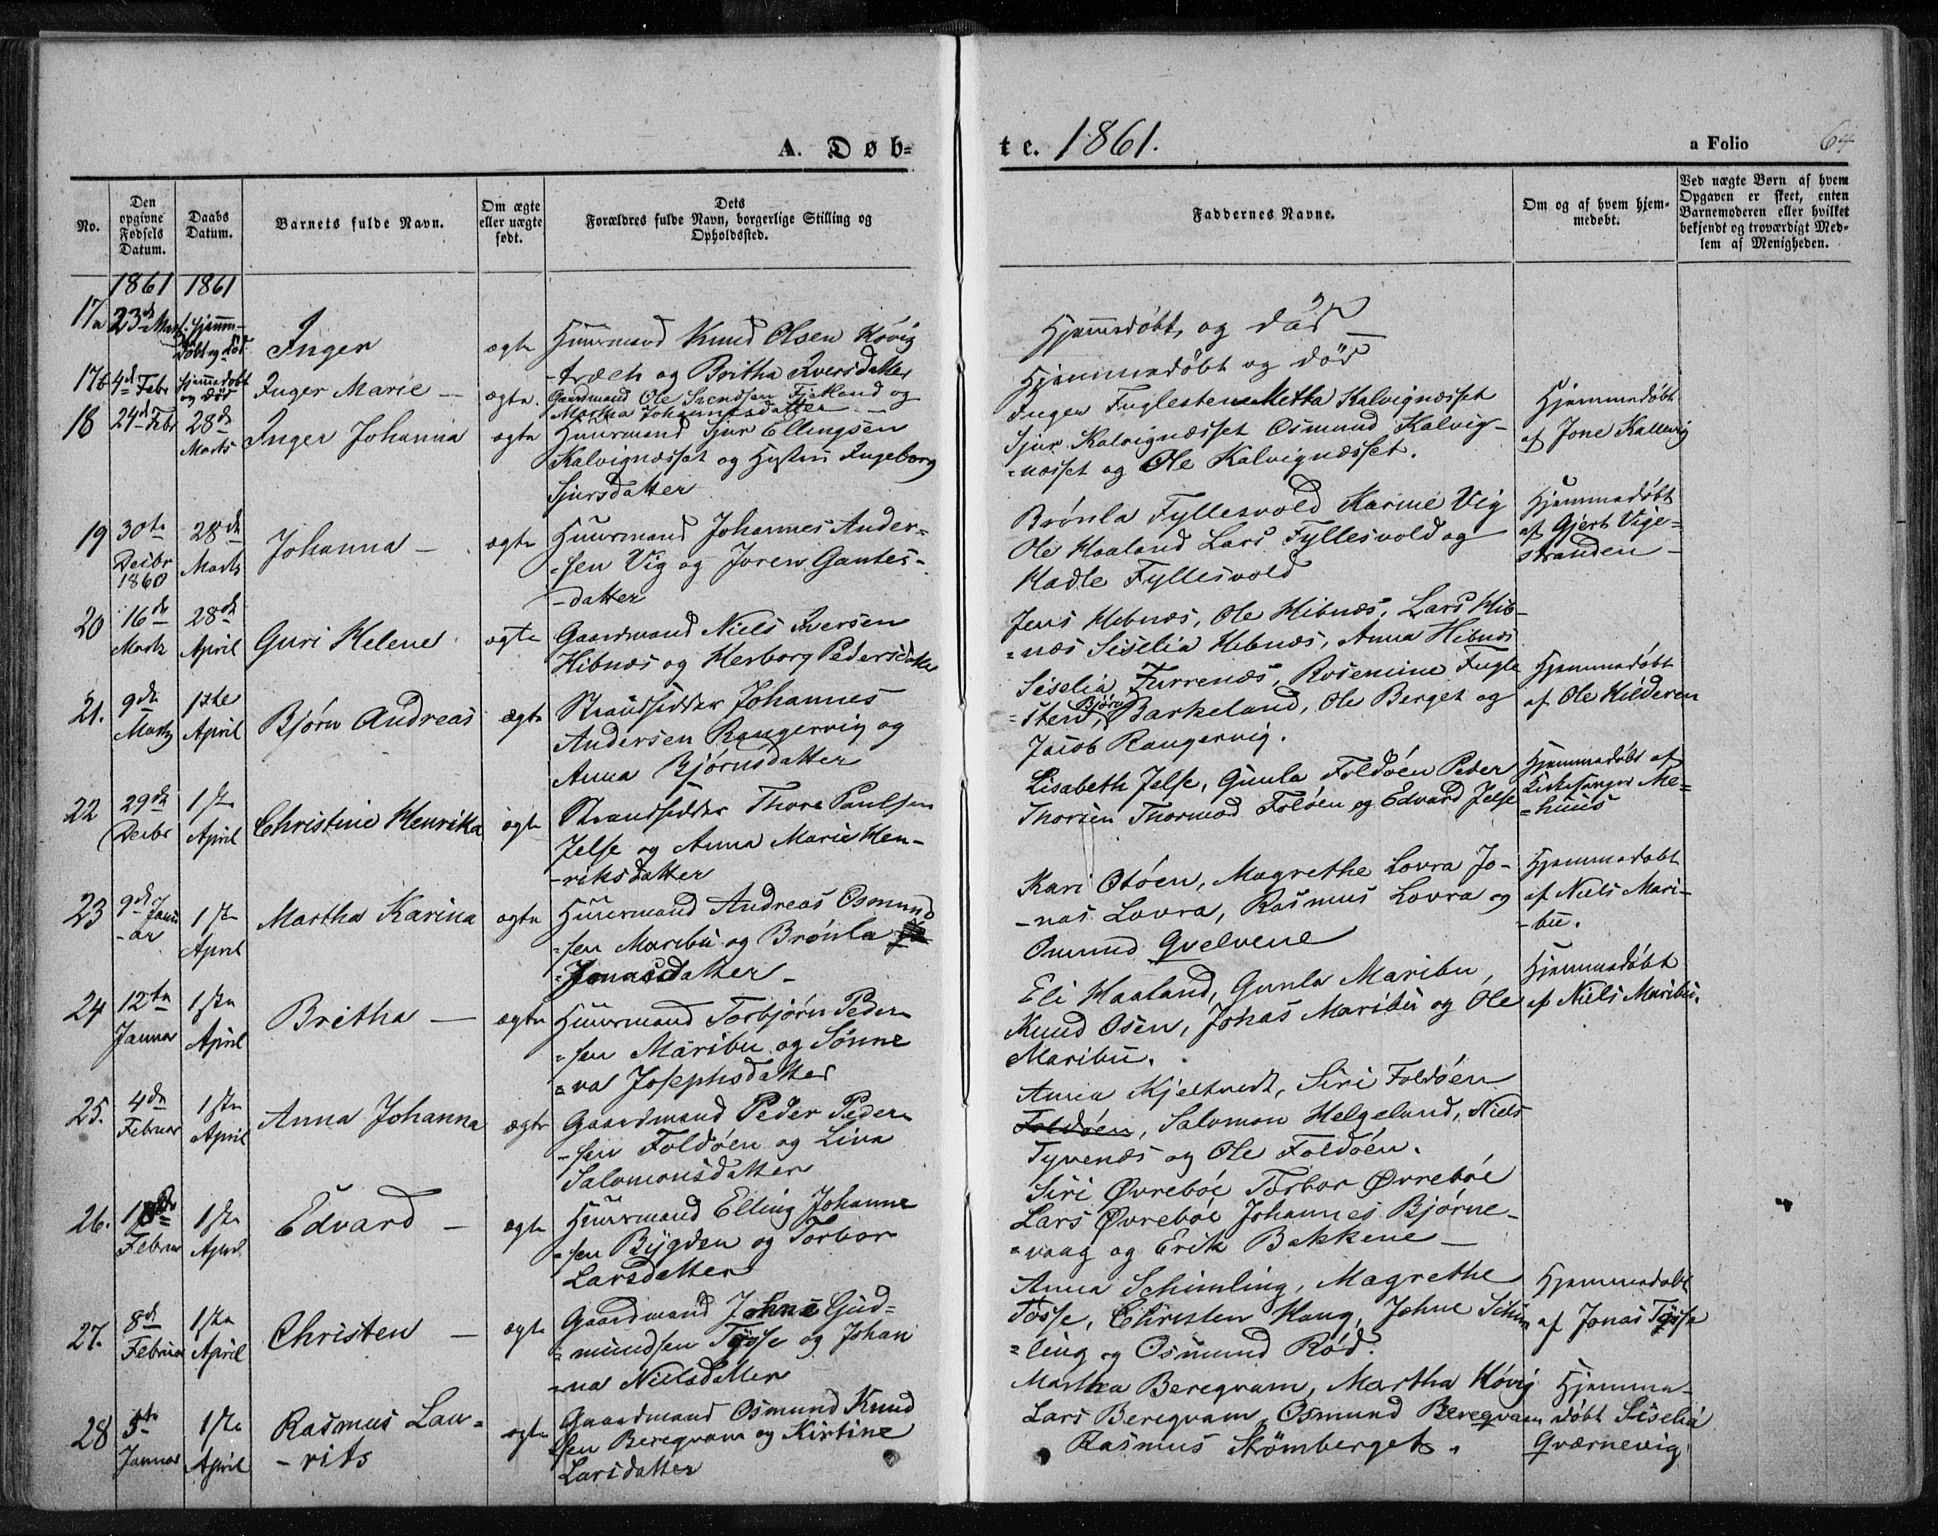 A. Døb-
te. 1861.
a Folio 64
No.
Den opgivne Fødsels Datum.
Daabs Datum.
Barnets fulde Navn.
Om ægte eller uægte født.
Dets Forældres fulde Navn, borgerlige Stilling og Opholdssted.
Faddernes Navne.
Om og af hvem hjemmedøbt.
Ved uægte Børn af hvem Opgaven er skeet, enten Barnemoderen eller hvilket bekjendt og troværdigt Medlem af Menigheden.
1861 1861
17a 23de Marts hjemmdöbt og död Inger ægte Huusmand Knud Olsen Hövig
træet og Britha Iversdatter
Hjemmedöbt og död
17b 4de Febr hjemmedöbt og död Inger Marie ægte. Gaardmand Ole Svendsen Fjetland og
Martha Johannesdatter
Hjemmedöbt og död
18 24de Febr 28de Marts Inger Johanna ægte Huusmand Sjur Ellingsen
Kalvignæsset og Hustru Ingeborg
Sjursdatter
Inger Fuglesten Metta Kalvignæsset
Sjur Kalvignæsset Osmund Kalvig-
næsset og Ole Kalvignæsset.
Hjemmedöbt
af Jone Kallevig
19 30te Decbr 1860 28de Marts Johanna ægte Huusmand Johannes Ander-
sen Vig og Joren Gautes-
datter
Brönla Fyllesvold Karine Vig
Ole Haaland Lars Fyllesvold og
Hadle Fyllesvold
Hjemmedöbt
af Gjert Vige-
stranden
20 16de Marts 28de April Guri Helene ægte Gaardmand Niels Iversen
Hibnæs og Herborg Pedersdatter
Jens Hibnæs, Ole Hibnæs, Lars Hib-
næs Siselia Hibnæs, Anna Hibnæs
21. 9de Marts 1ste April Bjørn Andreas ægte Strandsidder Johannes
Andersen Rangervig og
Anna Bjørnsdatter
Siselia Furrenæs, Rosemine Fugle
sten, Bjørn Barkeland, Ole Berget og
Jacob Rangervig.
Hjemmedöbt
af Ole Hilderen
22 29de Decbr 1ste April Christine Henrika ægte Strandsidder Thore Paulsen
Jelse og Anna Marie Hen-
riksdatter
Lisabeth Jelse, Gunla Foldöen Peder
Thorsen Thormod Foldöen og Edvard Jelse
Hjemmedöbt af
Kirkesanger Me-
huus
23 9de Janu-
ar 1ste April Martha Karina ægte Huusmand Andreas Osmund
sen Maribu og Brönla
Jonasdatter
Kari Otöen, Magrethe Lovra Jo-
nas Lovra, Rasmus Lovra og
Omund Qvelvene
Hjemmedöbt
af Niels Mari-
bu.
24 12te Januar 1ste April Britha ægte Huusmand Torbjörn Peder-
sen Maribu og Sönne
va Josephsdatter
Eli Haaland, Gunla Maribu,
Knud Osen, Johas Maribu og Ole
Maribu.
Hjemmedöbt
af Niels Maribu.
25. 4de Februar 1ste April Anna Johanna ægte Gaardmand Peder Peder-
sen Foldöen og Lina
Salomonsdatter
Anna Kjeltvedt, Siri Foldöen
Foldöen, Salomon Helgeland, Niels
Tyvenæs og Ole Foldöen.
26. 18de Februar 1ste April Edvard ægte Huusmand Elling Johanne
sen Bygden og Torbor
Larsdatter
Siri Øvreböe Torbor Øvreböe
Lars Øvreböe Johannes Björne-
vaag og Erik Bakkene
27. 8de Februar 1ste April Christen ægte Gaardmand Johne Gud-
mundsen Tösse og Johan
na Nielsdatter
Anna Schimling, Magrethe
Tösse, Christen Haug, Johne Schim
ling og Osmund Röd.
Hjemmedöbt
af Jonas Tösse
28 5te Januar 1ste April Rasmus Lau-
rits ægte Gaardmand Osmund Knud
sen Beregvam og Kirtine
Larsdatter
Martha Beregvam, Martha Hövig
Lars Beregvam Osmund Beregvam
Rasmus Strömberget.
Hjemme-
döbt Siselia
Qværnevig